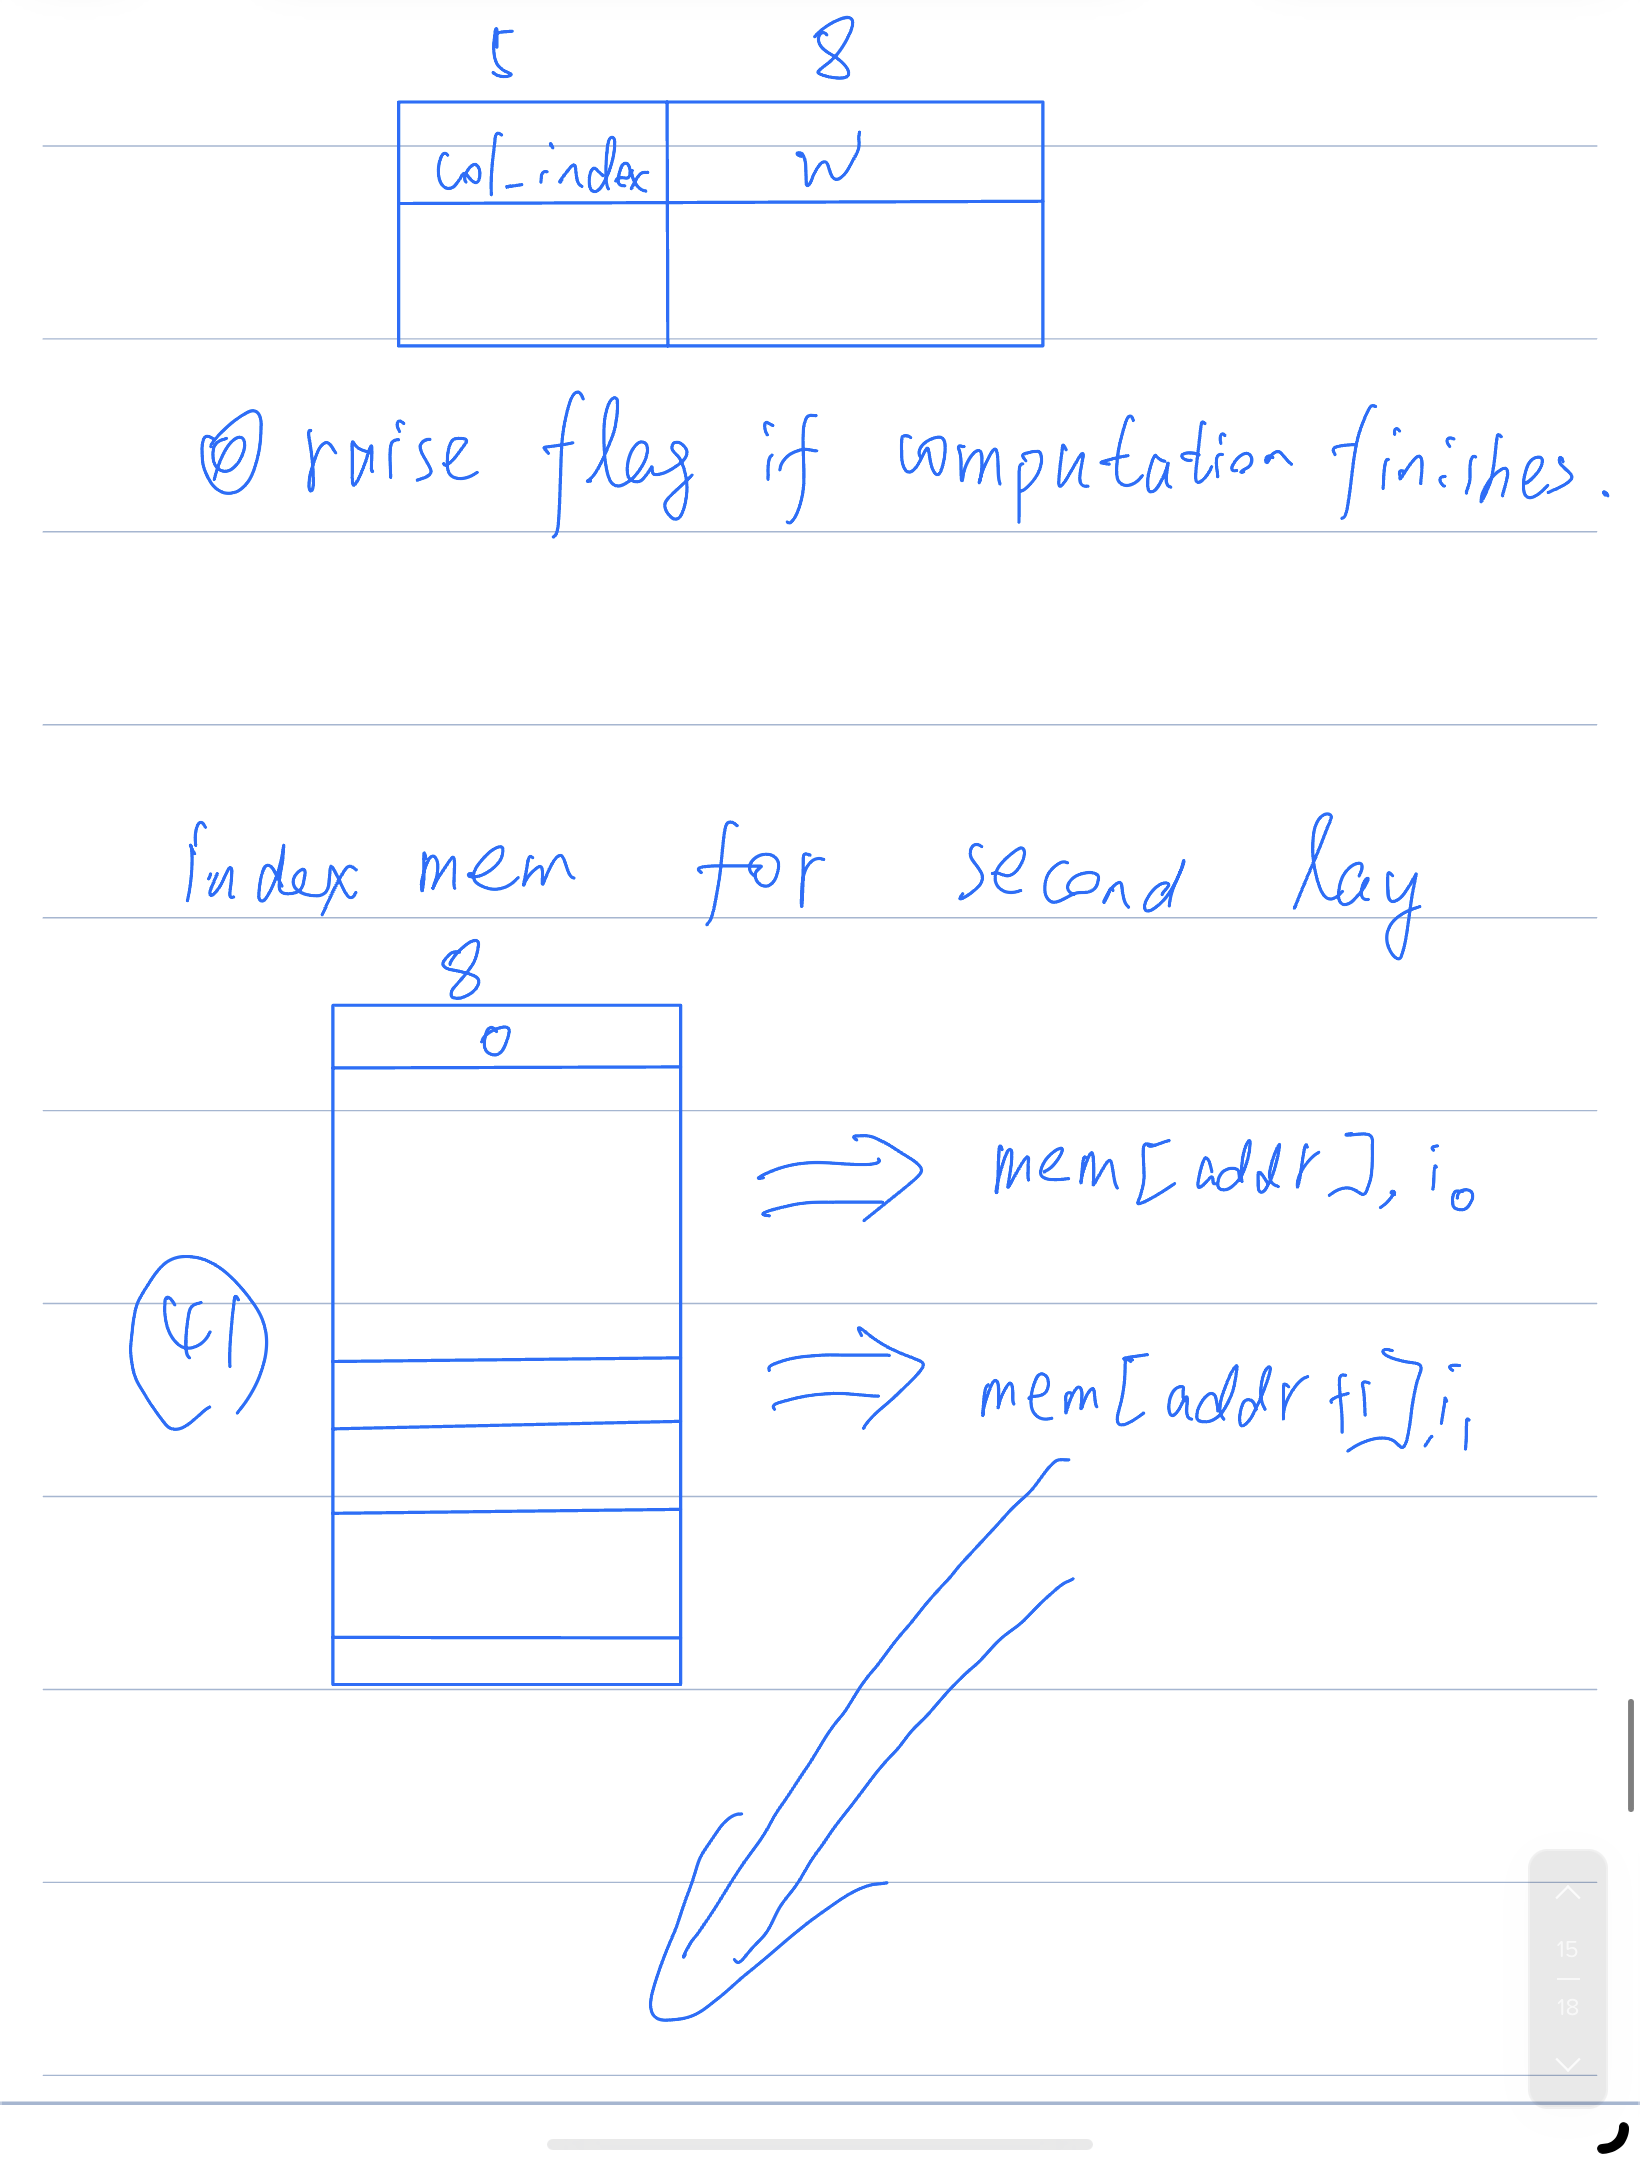 5 8
col_index w
raise flag if computation finishes.
Index mem for second lay
8
0
mem[addr], i0
41
mem[addr+1], i1
15
18